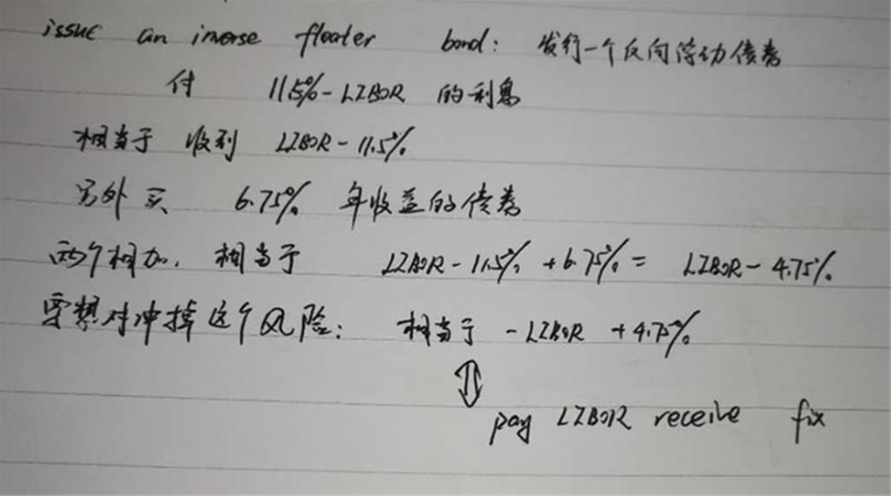 issue an inverse floater bond: 发行一个反向浮动债券
付 11.5%-LIBOR 的利息
相当于 收到 LIBOR-11.5%
另外买 6.75% 年收益的债券
两个相加,相当于 LIBOR-11.5%+6.75%= LIBOR-4.75%
要想对冲掉这个风险: 相当于 -LIBOR +4.75%
pay LIBOR receive fix